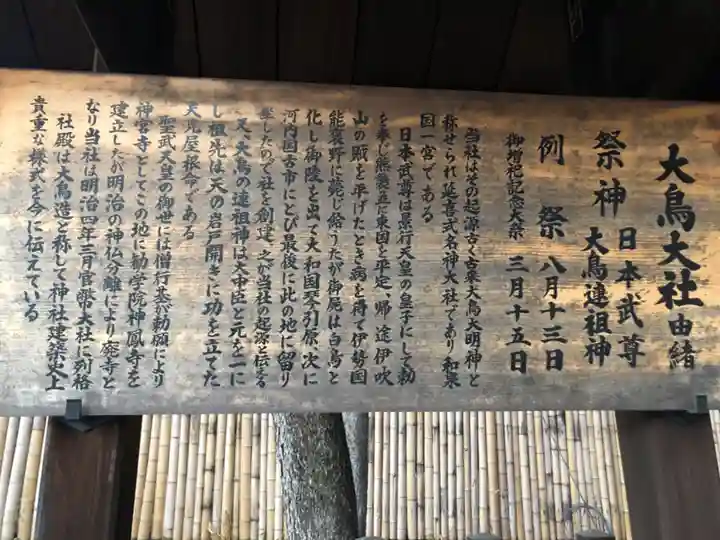 大鳥大社由緒
祭神 日本武尊
大鳥連祖神
例祭 八月十三日
御増祀記念大祭 三月十五日
当社はその起源古く古来大鳥大明神と
称せられ延喜式名神大社であり和泉
国一宮である
日本武尊は景行天皇の皇子にして勅
を奉じ熊襲並に東国を平定し帰途伊吹
山の賊を平げたとき病を得て伊勢国
能褒野に薨じ給うたが御屍は白鳥と
化し御陵を出て大和国琴引原次に
河内国古市にとび最後に此の地に留り
ましたので社を創建之が当社の起源と伝える
又、大鳥の連祖神は大中臣と元を一に
し祖先は天の岩戸開きに功を立てた
天児屋根命である
聖武天皇の御世には僧行基が勅願により
神宮寺としてこの地に勧学院神鳳寺を
建立したが明治の神仏分離により廃寺と
なり当社は明治四年三月官幣大社に列格
社殿は大鳥造と称して神社建築史上
貴重な様式を今に伝えている